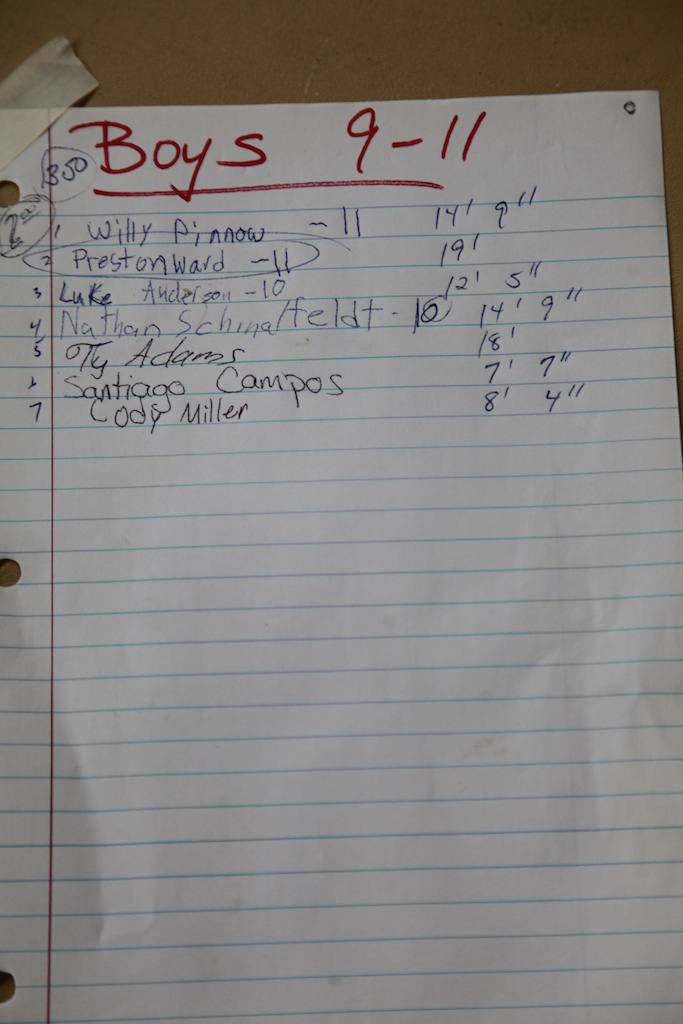 Boys 9-11
350
1 Willy Pinnow - 11 14' 9"
2 Preston Ward - 11 19'
3 Luke Anderson - 10 12' 5"
4 Nathan Schmalfeldt - 10 14' 9"
5 Ty Adams 18'
6 Santiago Campos 7' 7"
7 Cody Miller 8' 4"